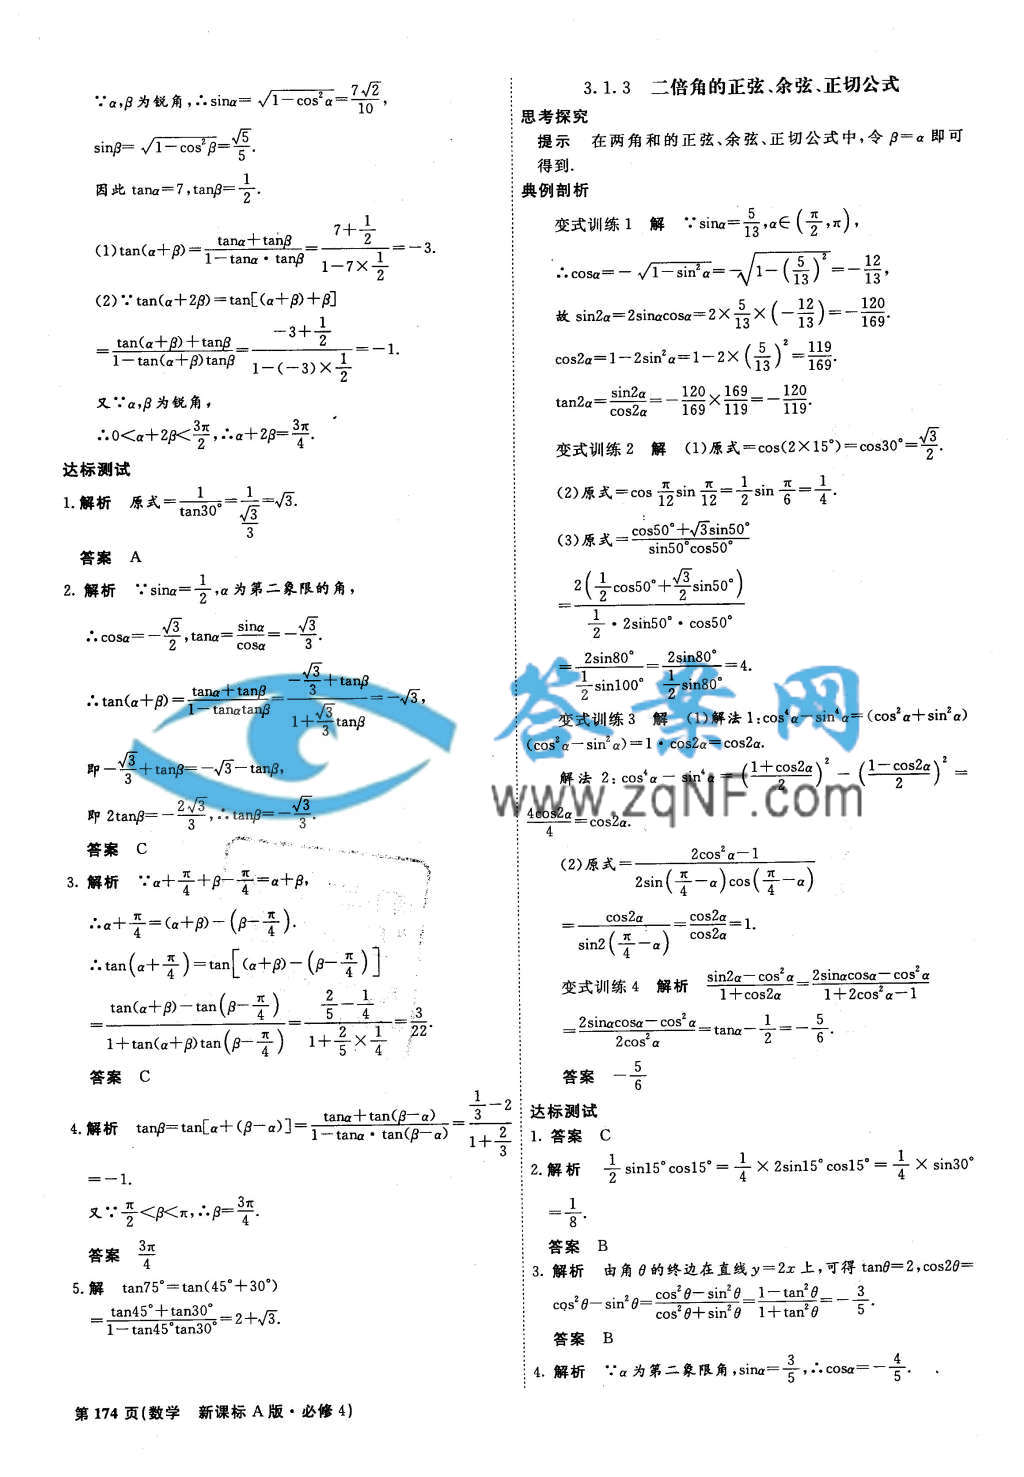 ∵α,β为锐角,∴sinα=√(1-cos²α)=7√2/10,
sinβ=√(1-cos²β)=√5/5.
因此 tanα=7,tanβ=1/2.
(1)tan(α+β)=(tanα+tanβ)/(1-tanα·tanβ)=(7+1/2)/(1-7×1/2)=-3.
(2)∵tan(α+2β)=tan[(α+β)+β]
=(tan(α+β)+tanβ)/(1-tan(α+β)tanβ)=(-3+1/2)/(1-(-3)×1/2)=-1.
又∵α,β为锐角,
∴0<α+2β<3π/2,∴α+2β=3π/4.
达标测试
1.解析 原式=1/tan30°=1/(√3/3)=√3.
答案 A
2.解析 ∵sinα=1/2,α为第二象限的角,
∴cosα=-√3/2,tanα=sinα/cosα=-√3/3.
∴tan(α+β)=(tanα+tanβ)/(1-tanαtanβ)=(-√3/3+tanβ)/(1+√3/3 tanβ)=-√3,
即-√3/3+tanβ=-√3-tanβ,
即2tanβ=-2√3/3,∴tanβ=-√3/3.
答案 C
3.解析 ∵α+π/4+β-π/4=α+β,
∴α+π/4=(α+β)-(β-π/4).
∴tan(α+π/4)=tan[(α+β)-(β-π/4)]
=(tan(α+β)-tan(β-π/4))/(1+tan(α+β)tan(β-π/4))=(2/5-1/4)/(1+2/5×1/4)=3/22.
答案 C
4.解析 tanβ=tan[α+(β-α)]=(tanα+tan(β-α))/(1-tanα·tan(β-α))=(1/3-2)/(1+2/3)
=-1.
又∵π/2<β<π,∴β=3π/4.
答案 3π/4
5.解 tan75°=tan(45°+30°)
=(tan45°+tan30°)/(1-tan45°tan30°)=2+√3.
第174页(数学 新课标A版·必修4)
3.1.3 二倍角的正弦、余弦、正切公式
思考探究
提示 在两角和的正弦、余弦、正切公式中,令β=α即可
得到.
典例剖析
变式训练1 解 ∵sinα=5/13,α∈(π/2,π),
∴cosα=-√(1-sin²α)=-√(1-(5/13)²)=-12/13,
故 sin2α=2sinαcosα=2×5/13×(-12/13)=-120/169.
cos2α=1-2sin²α=1-2×(5/13)²=119/169.
tan2α=sin2α/cos2α=-120/169×169/119=-120/119.
变式训练2 解 (1)原式=cos(2×15°)=cos30°=√3/2.
(2)原式=cos π/12 sin π/12=1/2 sin π/6=1/4.
(3)原式=(cos50°+√3sin50°)/(sin50°cos50°)
=2(1/2 cos50°+√3/2 sin50°)/(1/2·2sin50°·cos50°)
=2sin80°/(1/2 sin100°)=2sin80°/(1/2 sin80°)=4.
变式训练3 解 (1)解法1:cos⁴α-sin⁴α=(cos²α+sin²α)
(cos²α-sin²α)=1·cos2α=cos2α.
解法2:cos⁴α-sin⁴α=((1+cos2α)/2)²-((1-cos2α)/2)²=
4cos2α/4=cos2α.
(2)原式=(2cos²α-1)/(2sin(π/4-α)cos(π/4-α))
=cos2α/sin2(π/4-α)=cos2α/cos2α=1.
变式训练4 解析 (sin2α-cos²α)/(1+cos2α)=(2sinαcosα-cos²α)/(1+2cos²α-1)
=(2sinαcosα-cos²α)/(2cos²α)=tanα-1/2=-5/6.
答案 -5/6
达标测试
1.答案 C
2.解析 1/2 sin15°cos15°=1/4×2sin15°cos15°=1/4×sin30°
=1/8.
答案 B
3.解析 由角θ的终边在直线y=2x上,可得tanθ=2,cos2θ=
cos²θ-sin²θ=(cos²θ-sin²θ)/(cos²θ+sin²θ)=(1-tan²θ)/(1+tan²θ)=-3/5.
答案 B
4.解析 ∵α为第二象限角,sinα=3/5,∴cosα=-4/5.
答案网
www.zqNF.com